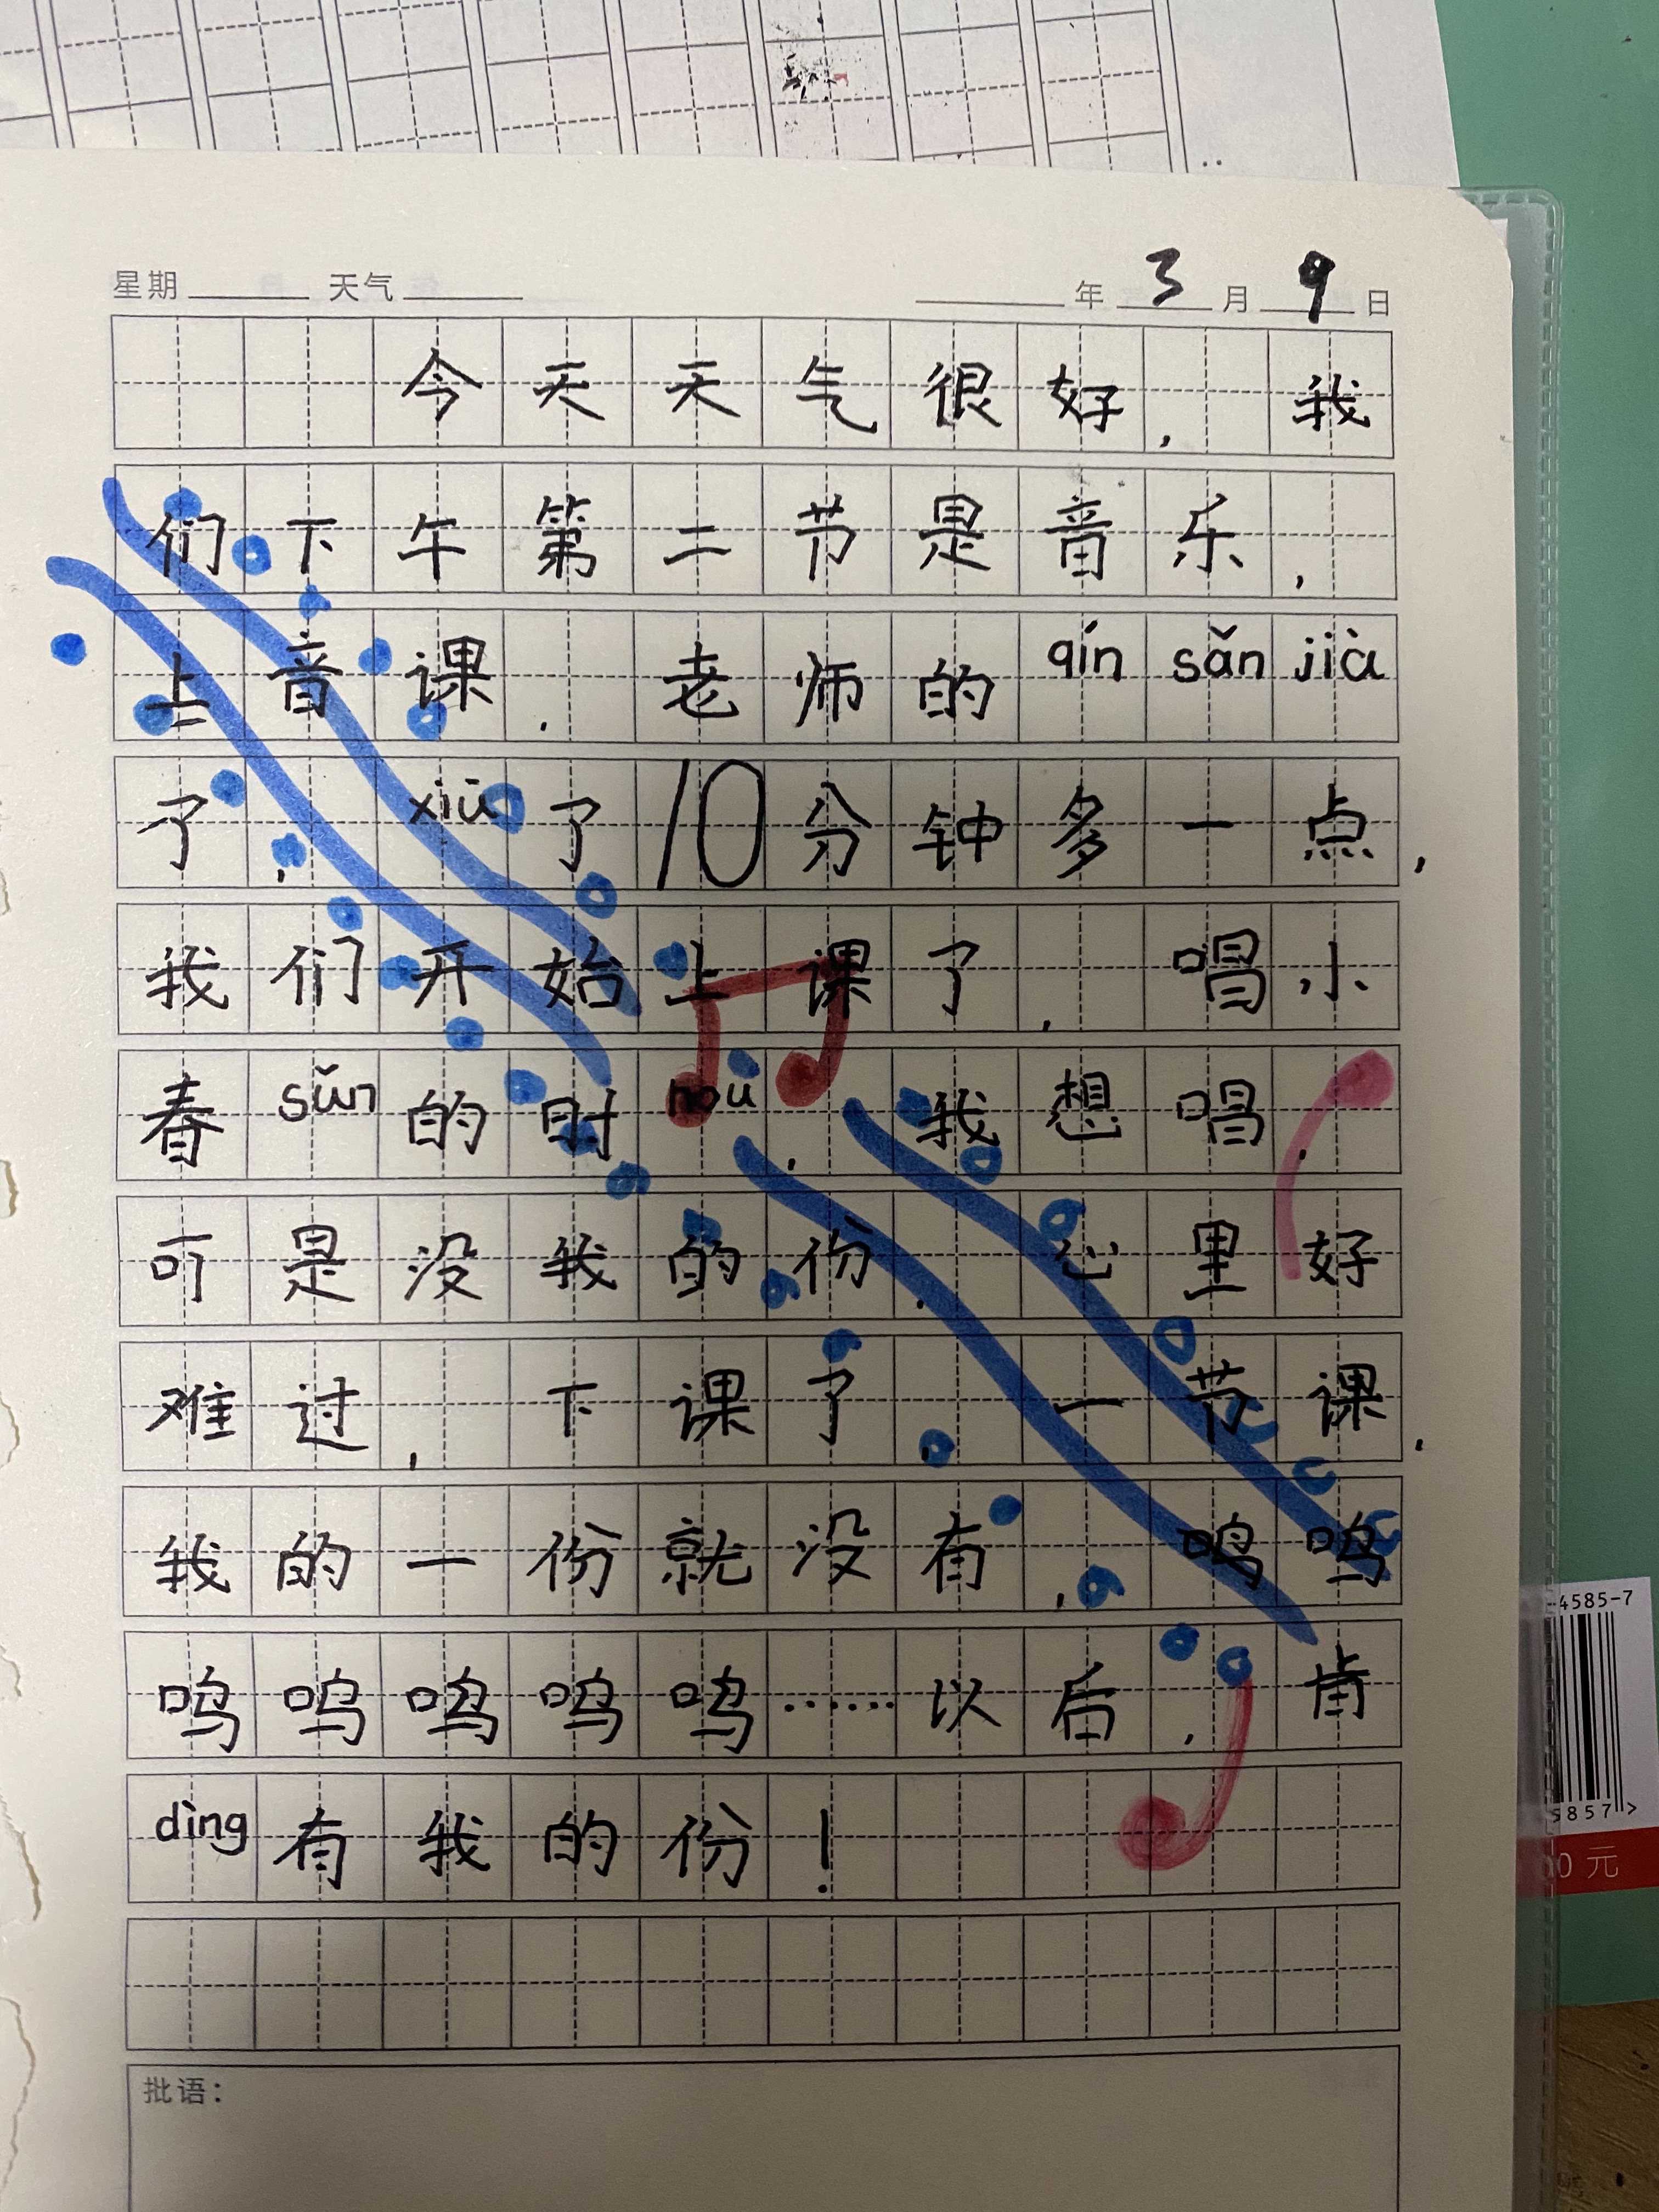 星期 天气 年 3 月 9 日
今天天气很好，我
们下午第二节是音乐，
上音课，老师的qín sǎn jià
了，xiū了10分钟多一点，
我们开始上课了，唱小
春sǔn的时hou，我想唱，
可是没我的份，心里好
难过，下课了，一节课，
我的一份就没有，呜呜
呜呜呜呜呜……以后，肯
dìng有我的份！
批语：
-4585-7
5857>
00元